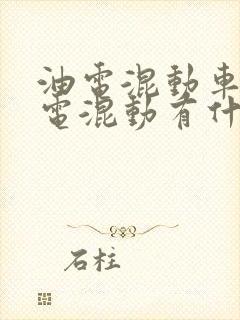 油電混動車
電混動有什
石柱